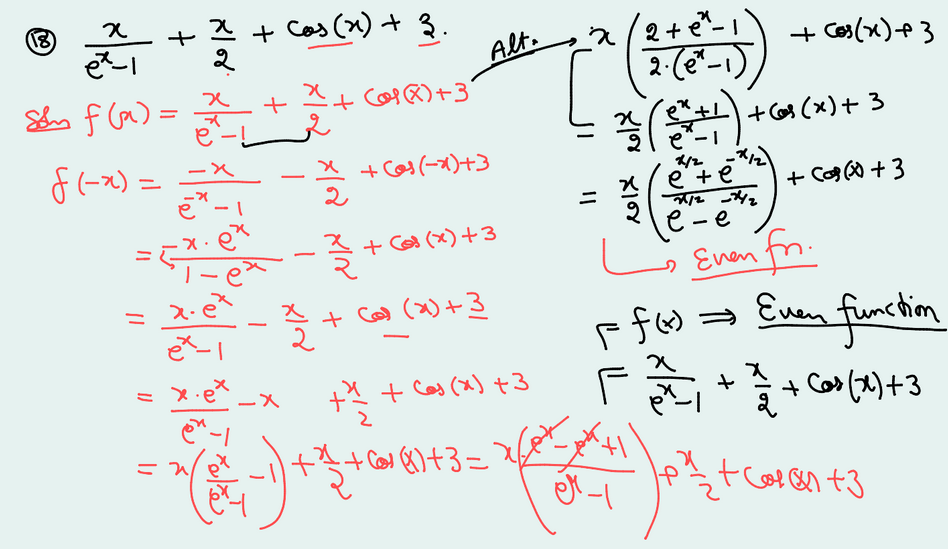 (18) x/(e^x-1) + x/2 + Cos(x) + 3.
Soln f(x) = x/(e^x-1) + x/2 + Cos(x)+3
f(-x) = -x/(e^-x-1) - x/2 + Cos(-x)+3
= -x.e^x/(1-e^x) - x/2 + Cos(x)+3
= x.e^x/(e^x-1) - x/2 + Cos(x)+3
= x.e^x/(e^x-1) -x +x/2 + Cos(x)+3
= x(e^x/(e^x-1) -1) +x/2+Cos(x)+3 = x((e^x-e^x+1)/(e^x-1)) + x/2 + Cos(x)+3
Alt. x((2+e^x-1)/(2.(e^x-1))) + Cos(x)+3
= x/2((e^x+1)/(e^x-1)) + Cos(x)+3
= x/2((e^x/2+e^-x/2)/(e^x/2-e^-x/2)) + Cos(x)+3
Even fn.
f(x) ⇒ Even function
= x/(e^x-1) + x/2 + Cos(x)+3